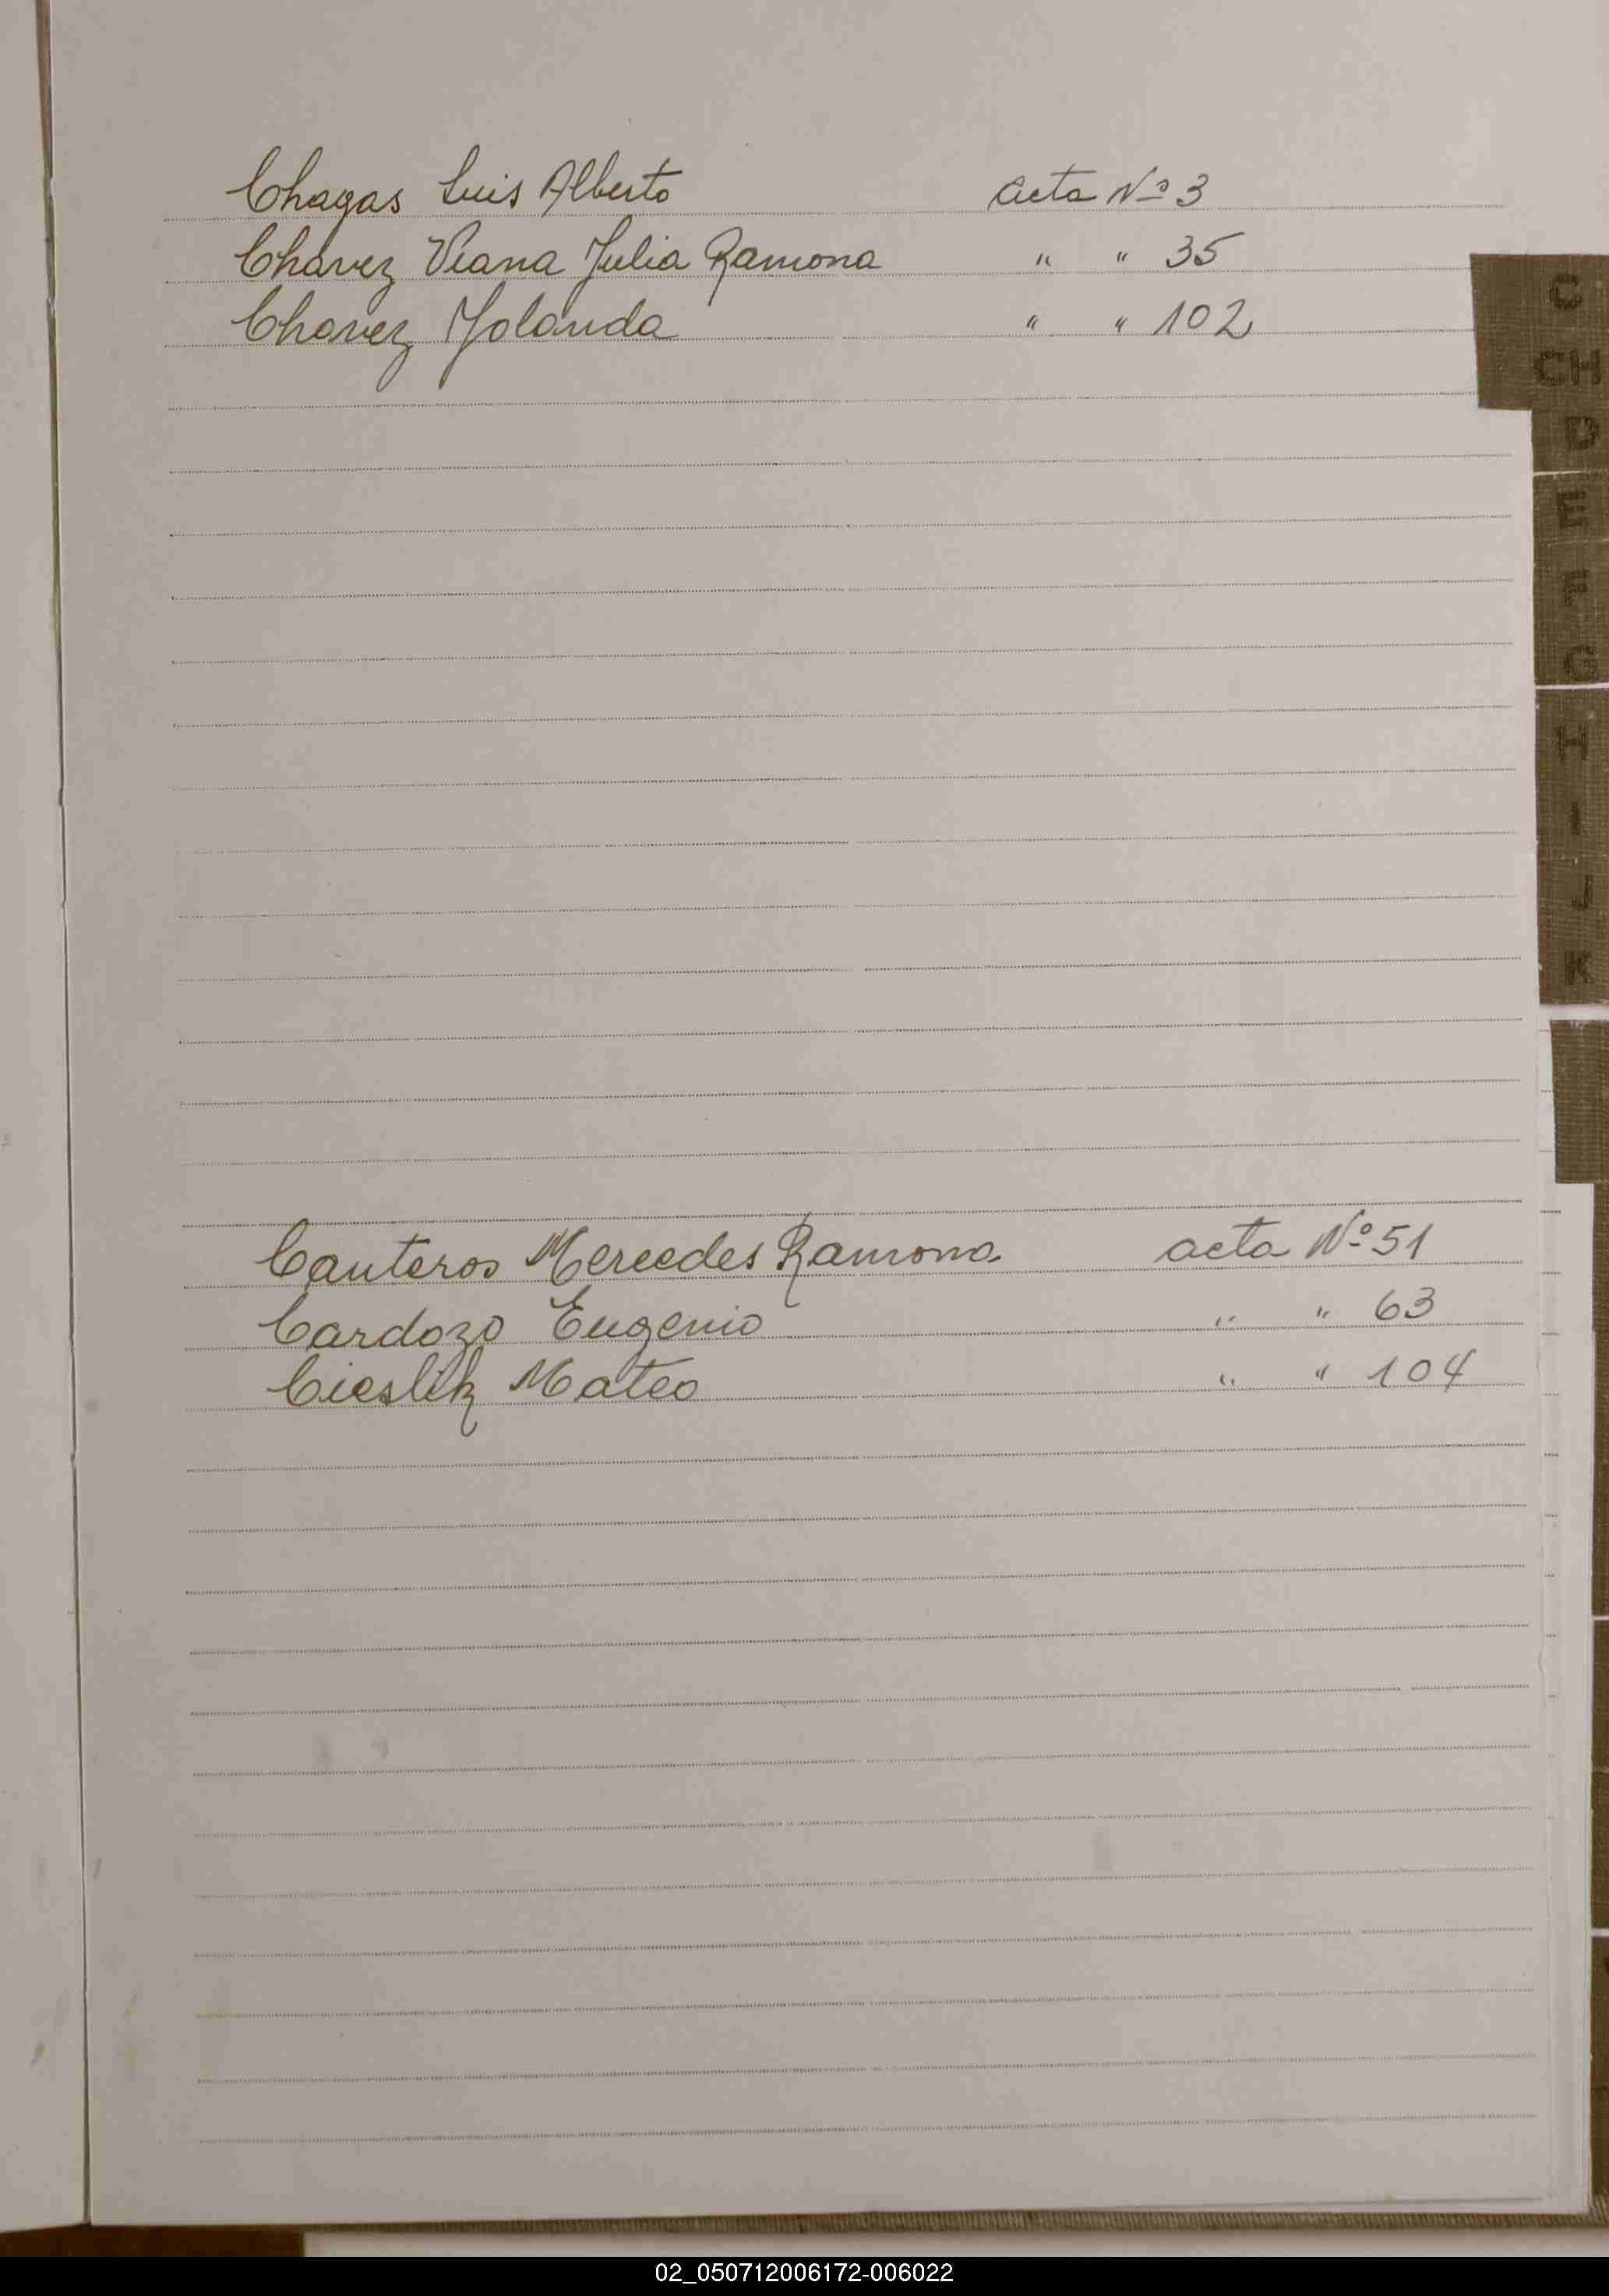 Chagas Luis Alberto acta Nº 3
Chavez Viana Julia Ramona " " 35
Chavez Yolanda " " 102
C
CH
D
E
F
G
H
I
J
K
Canteros Mercedes Ramona acta Nº 51
Cardozo Eugenio " " 63
Cieslik Mateo " " 104
02_050712006172-006022